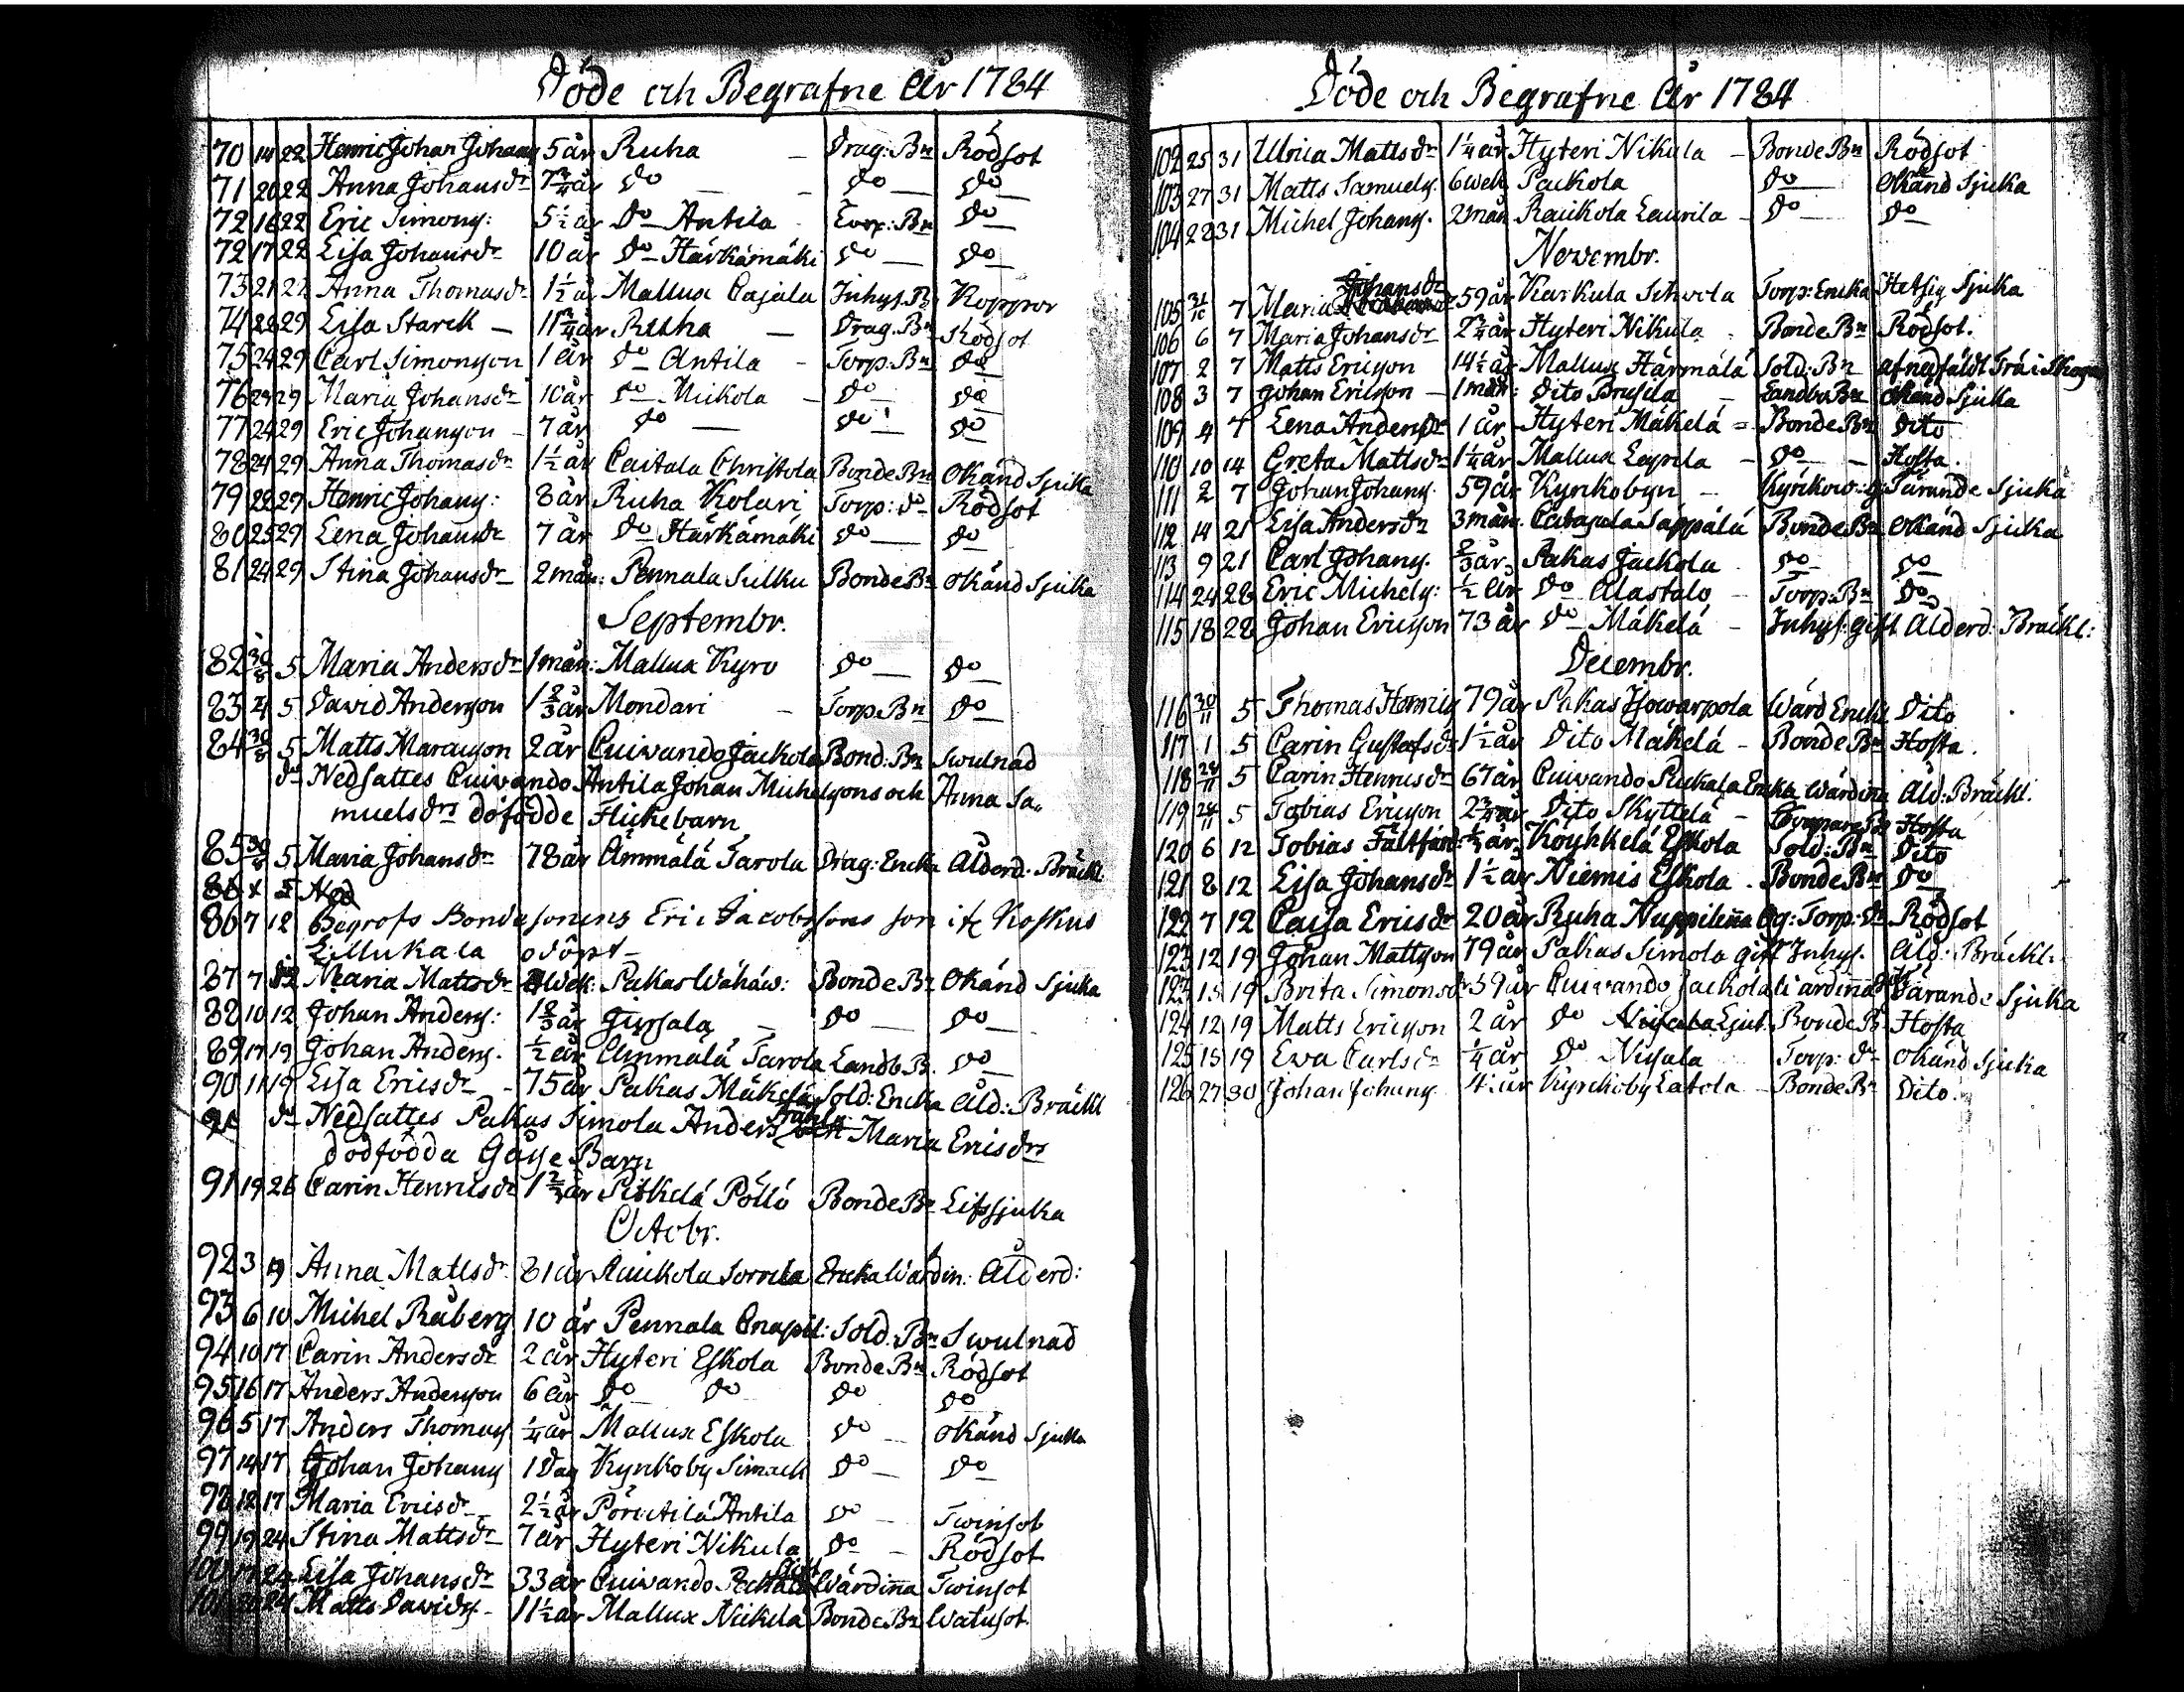 Döde och Begrafne År 1784
70 14 22 Henric Johan Johans 5 år Ruha – Drag: Bn Rödsot
71 20 22 Anna Johansdr 7¾ år do – do – do –
72 16 22 Eric Simons: 5½ år do Antila Torp: Bn do –
72 17 22 Lisa Johansdr 10 år do Härkämäki do – do
73 21 22 Anna Thomasdr 1½ år Mallux Cajala Inhys. B Koppor
74 28 29 Lisa Starck – 11¾ år Ruha – Drag: Bn Rödsot
75 24 29 Carl Simonsson 1 år do Antila – Torp: Bn do
76 29 29 Maria Johansdr 10 år do Mickola – do – do
77 24 29 Eric Johansson – 7 år do – do – do
78 24 29 Anna Thomasdr 1½ år Caitala Christola Bonde Bn Okänd Sjuka
79 28 29 Henric Johans: 8 år Ruha Kolari Torp: do Rödsot
80 25 29 Lena Johansdr 7 år do Härkämäki do – do
81 24 29 Stina Johansdr 2 mån: Pennala Silku Bonde Bn Okänd Sjuka
Septembr.
82 30/8 5 Maria Andersdr 1 mån: Mallux Kyro do – do
83 4 5 David Andersson 1⅔ år Mondari – Torp Bn do
84 30/8 5 Matts Marcusson 2 år Cuivando Jackola Bond: Bn Swulnad
do Nedsattes Cuivando Antila Johan Michelssons och Anna Sa-
muelsdrs dödfödde Flickebarn
85 30/8 5 Maria Johansdr 78 år Ämmälä Tarola Drag: Encka Ålderd: Bräckl.
86 4 5 Ned
86 7 12 Begrofs Bondesonens Eric Jacobssons son ifr Koskus
Lillukala odöpt –
87 7 12 Maria Mattsdr Wek: Pakas Wähäw: Bonde Bn Okänd Sjuka
88 10 12 Johan Anders: 1⅔ år Gipsala – do – do –
89 17 19 Johan Anders. ½ år Ämmälä Tarola Landb B. do –
90 11 19 Lisa Ericsdr – 75 år Pakas Mäkelä Sold: Encka Åld: Bräckl
91 do Nedsattes Pakas Simola Anders och Maria Ericsdrs
dödfödda Gosse Barn
91 19 26 Carin Henricsdr 1⅔ år Pitkelä Pöllö Bonde Bn Lifssjuka
Octobr.
92 3 Anna Mattsdr 81 år Raukola Sorrila Encka Wärdin: Ålderd:
93 6 10 Michel Råberg 10 år Pennala Cnapil: Sold: Bn Swulnad
94 10 17 Carin Andersdr 2 år Hyteri Eskola Bonde Bn Rödsot
95 16 17 Anders Andersson 6 år do do do do
96 5 17 Anders Thomas ¼ år Mallux Eskola do – Okänd Sjuka
97 14 17 Johan Johans 1 Dag Kyrkoby Simack do – do
98 12 17 Maria Ericsdr 2½ år Antila do – Twinsot
99 19 24 Stina Mattsdr 7 år Hyteri Nikula do – Rödsot
100 24 Lisa Johansdr 33 år Cuivando Wärdinna Twinsot
24 Matts Davids – 11½ år Mallux Nickilä Bonde Bn Watusot
Döde och Begrafne År 1784
102 25 31 Ulrica Mattsdr 1¼ år Hyteri Nikula – Bonde Bn Rödsot
103 27 31 Matts Samuels. 6 Wek Packola do – Okänd Sjuka
104 28 31 Michel Johans. 2 mån Raukola Laurila – do – do
Novembr.
105 31/10 7 Maria Johansdr 59 år Karkula Torp: Encka Hetsig Sjuka
106 6 7 Maria Johansdr 2¾ år Hyteri Nikula – Bonde Bn Rödsot.
107 2 7 Matts Ericsson 14½ år Mallux Härmälä Sold: Bn af nedfäldt Trä i Skogen
108 3 7 Johan Ericsson – 1 mån: Dito Brusila – Landbo Bn Okänd Sjuka
109 4 7 Lena Andersdr 1 år Hyteri Mäkelä = Bonde Bn Dito
110 10 14 Greta Mattsdr 1¼ år Mallux – do – Hosta.
111 2 7 Johan Johans. 59 år Kyrkobyn – Kyrkow: g: Tärande Sjuka
112 14 21 Lisa Andersdr 3 mån: Sappälä Bonde Bn Okänd Sjuka
113 9 21 Carl Johans. ⅔ år Pakas Jackola do – do
114 24 28 Eric Michels: ½ år do Alastalo – Torp: Bn do
115 18 28 Johan Ericsson 73 år do Mäkelä – Inhys: gift Ålderd: Bräckl:
Decembr.
116 30/11 5 Thomas Henrics 79 år Pakas Isowarpola Wärd Enckl Dito
117 1 5 Carin Gustafsdr 1½ år Dito Mäkelä – Bonde Bn Hosta.
118 28/11 5 Carin Henricsdr 67 år Cuivando Encka Wärdina Åld: Bräckl.
119 24/11 5 Tobias Ericsson 2¾ år Dito Skyttelä – Hosta
120 6 12 Tobias Köyhkelä Eskola Sold: Bn Dito
121 8 12 Lisa Johansdr 1½ år Niemis Eskola – Bonde Bn do
122 7 12 Caisa Ericsdr 20 år Ruha Nuppilinna Og: Torp: dr Rödsot
123 12 19 Johan Mattsson 79 år Pakas Simola gift Inhys. Åld: Bräckl.
15 19 Brita Simonsdr 59 år Cuivando Jackola Wärdinna Tärande Sjuka
124 12 19 Matts Ericsson 2 år do Bonde B Hosta
125 15 19 Ewa Carlsdr ¼ år do Nisula Torp: dr Okänd Sjuka
126 27 30 Johan Johans. Kyrckoby Latola – Bonde Bn Dito.